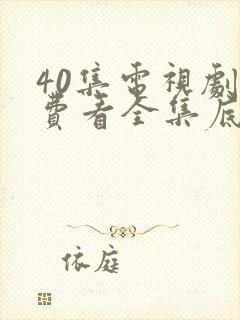 40集電視劇
費看全集底
依庭